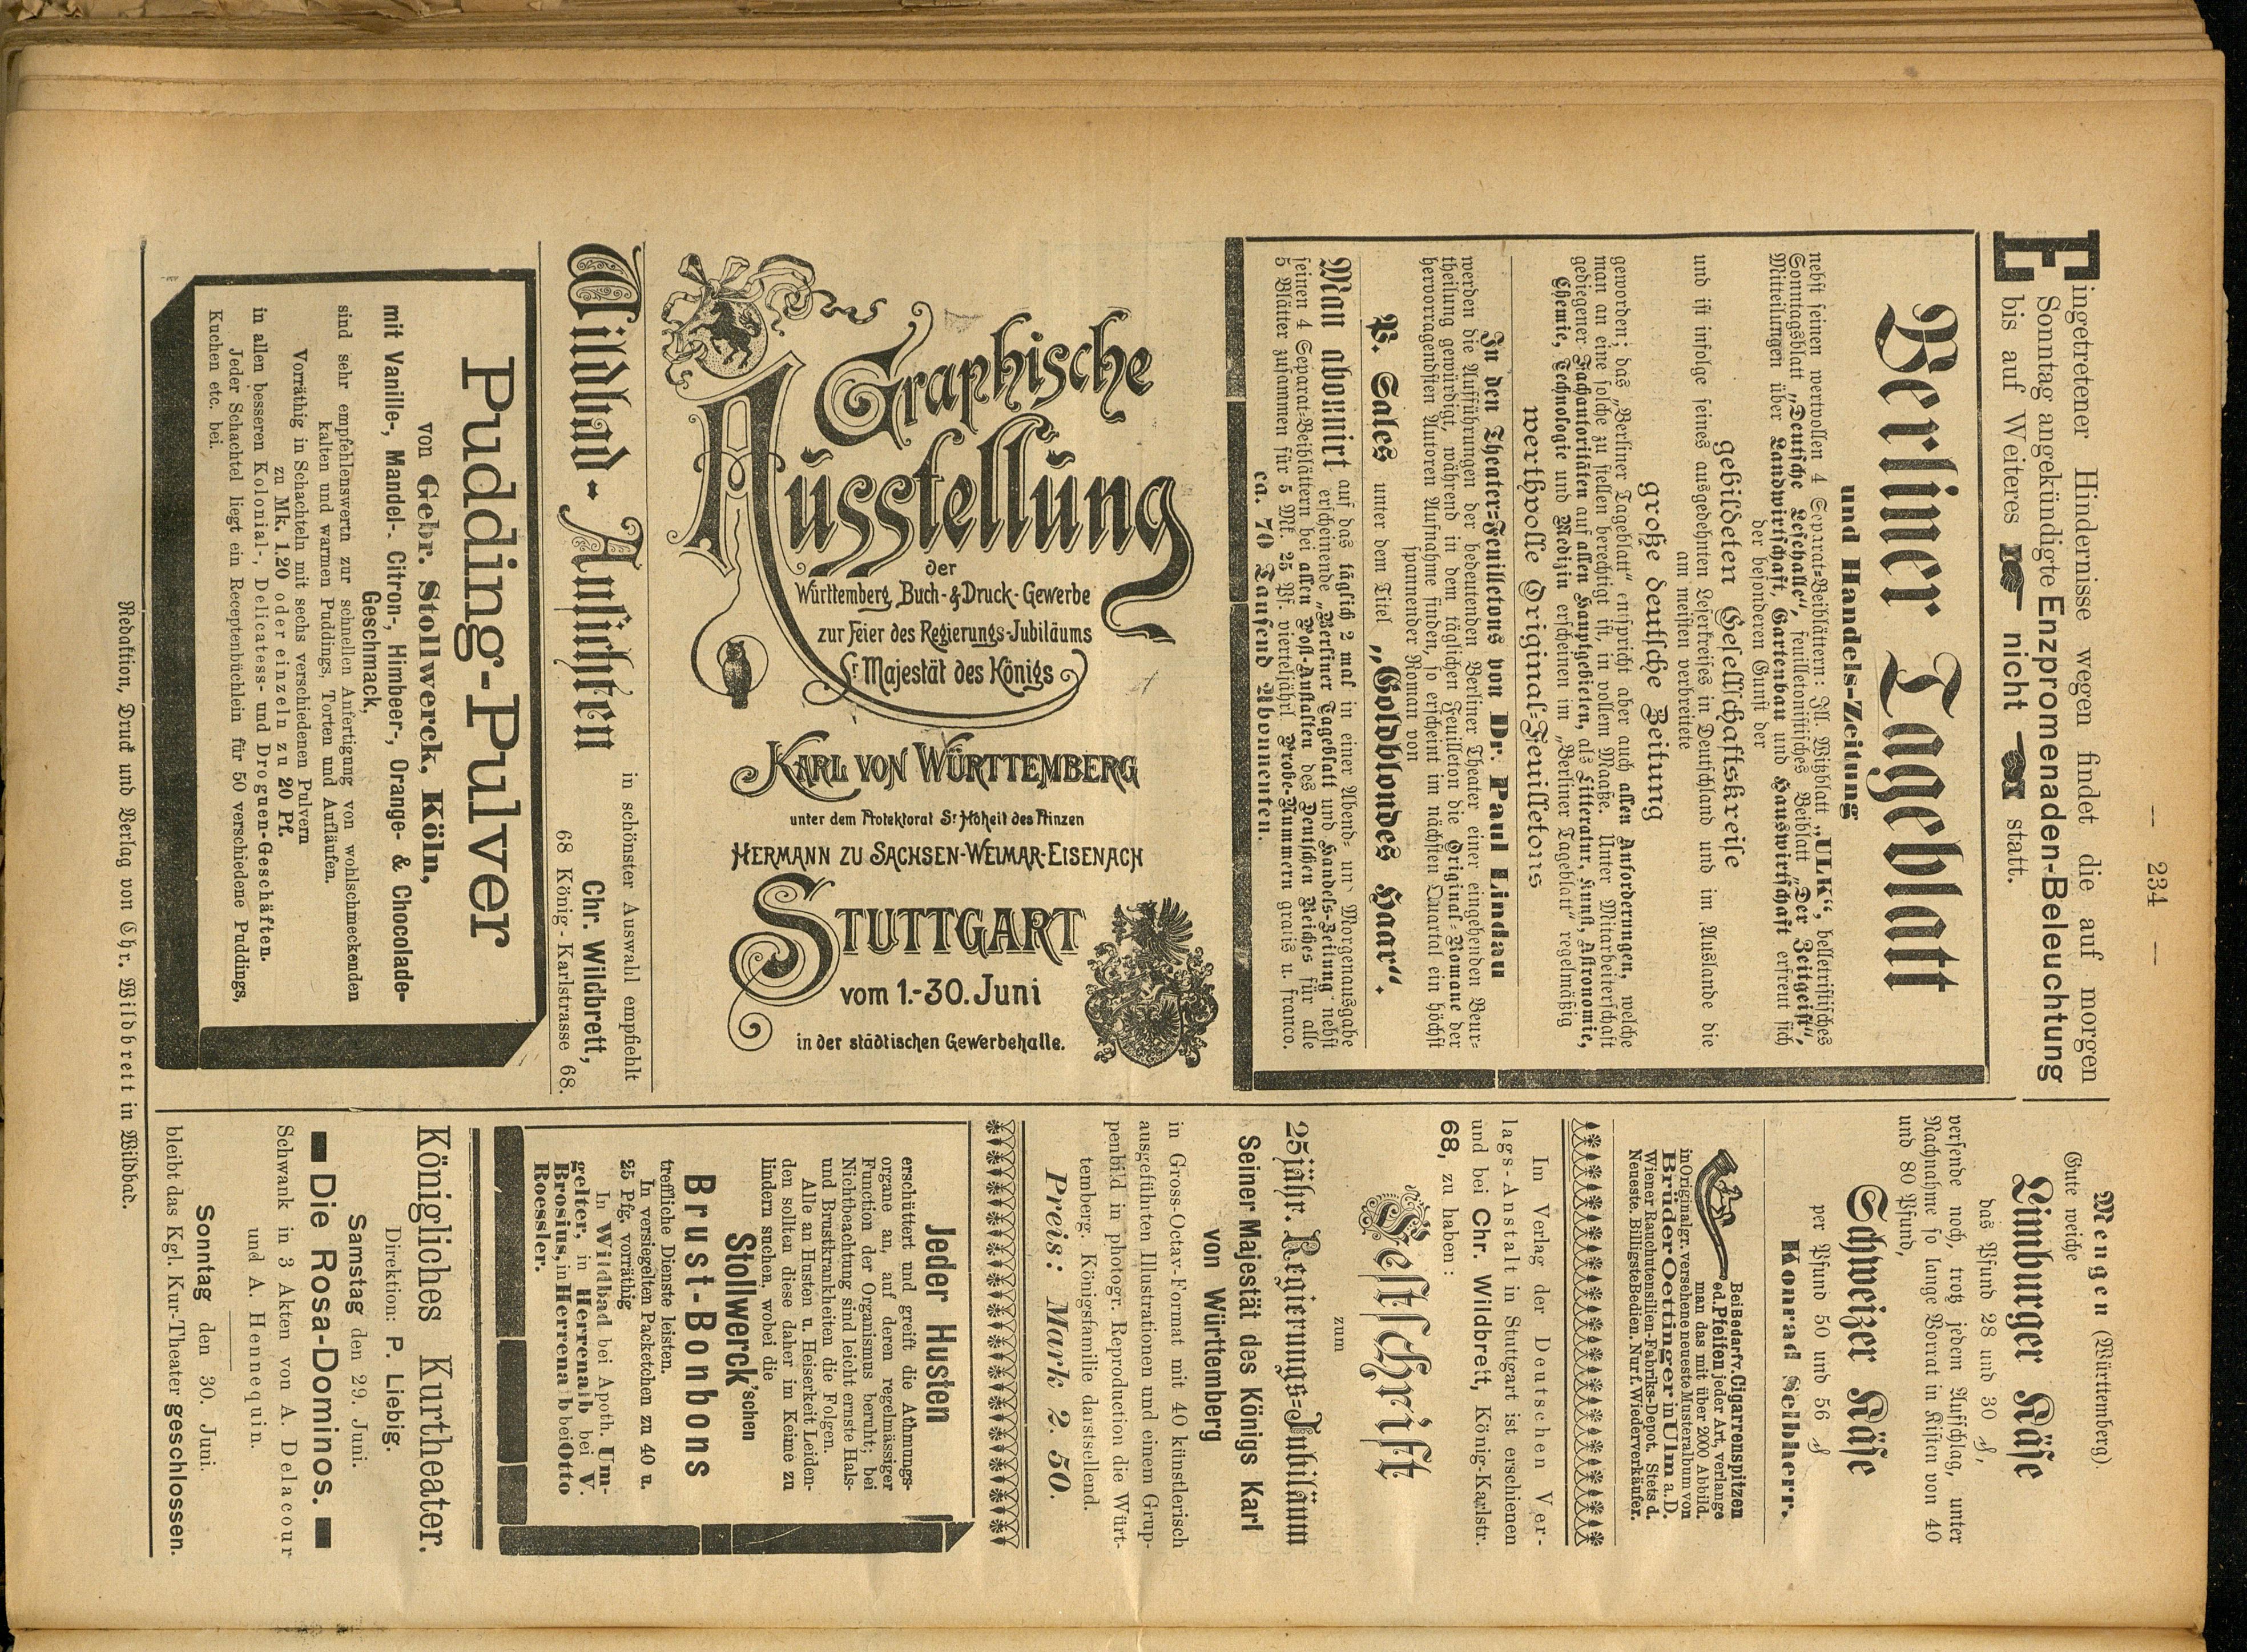 — 234 —
Eingetretener Hindernisse wegen findet die auf morgen
Sonntag angekündigte Enzpromenaden-Beleuchtung
bis auf Weiteres nicht statt.
Berliner Tageblatt
und Handels-Zeitung
nebst seinen wertvollen 4 Separat-Beiblättern: Ill. Witzblatt „ULK“, belletristisches
Sonntagsblatt „Deutsche Lesehalle“, feuilletonistisches Beiblatt „Der Zeitgeist“,
Mitteilungen über Landwirtschaft, Gartenbau und Hauswirtschaft erfreut sich
der besonderen Gunst der
gebildeten Gesellschaftskreise
und ist infolge seines ausgedehnten Leserkreises in Deutschland und im Auslande die
am meisten verbreitete
große deutsche Zeitung
geworden; das „Berliner Tageblatt“ entspricht aber auch allen Anforderungen, welche
man an eine solche zu stellen berechtigt ist, in vollem Maaße. Unter Mitarbeiterschaft
gediegener Fachautoritäten auf allen Hauptgebieten, als Litteratur, Kunst, Astronomie,
Chemie, Technologie und Medizin erscheinen im „Berliner Tageblatt“ regelmäßig
werthvolle Original-Feuilletons
In den Theater-Feuilletons von Dr. Paul Lindau
werden die Aufführungen der bedeutenden Berliner Theater einer eingehenden Beur-
theilung gewürdigt, während in dem täglichen Feuilleton die Original-Romane der
hervorragendsten Autoren Aufnahme finden, so erscheint im nächsten Quartal ein höchst
spannender Roman von
P. Sales unter dem Titel „Goldblondes Haar“.
Man abonnirt auf das täglich 2 mal in einer Abend- und Morgenausgabe
erscheinende „Berliner Tageblatt und Handels-Zeitung“ nebst
seinen 4 Separat-Beiblättern bei allen Post-Anstalten des Deutschen Reiches für alle
5 Blätter zusammen für 5 Mk. 25 Pf. vierteljährl. Probe-Nummern gratis u. franco.
ca. 70 Tausend Abonnenten.
Graphische
Ausstellung
der
Württemberg. Buch-&Druck-Gewerbe
zur Feier des Regierungs-Jubiläums
Sr Majestät des Königs
KARL VON WÜRTTEMBERG
unter dem Protektorat Sr Hoheit des Prinzen
HERMANN ZU SACHSEN-WEIMAR-EISENACH
STUTTGART
vom 1.-30. Juni
in der städtischen Gewerbehalle.
Wildbad-Ansichten
in schönster Auswahl empfiehlt
Chr. Wildbrett,
68 König-Karlstrasse 68.
Pudding-Pulver
von Gebr. Stollwerck, Köln,
mit Vanille-, Mandel-, Citron-, Himbeer-, Orange- & Chocolade-
Geschmack,
sind sehr empfehlenswerth zur schnellen Anfertigung von wohlschmeckenden
kalten und warmen Puddings, Torten und Aufläufen.
Vorräthig in Schachteln mit sechs verschiedenen Pulvern
zu Mk. 1.20 oder einzeln zu 20 Pf.
in allen besseren Kolonial-, Delicatess- und Droguen-Geschäften.
Jeder Schachtel liegt ein Receptenbüchlein für 50 verschiedene Puddings,
Kuchen etc. bei.
Mengen (Württemberg).
Gute weiche
Limburger Käse
das Pfund 28 und 30 ₰,
versende noch, trotz jedem Aufschlag, unter
Nachnahme so lange Vorrat in Kisten von 40
und 80 Pfund,
Schweizer Käse
per Pfund 50 und 56 ₰
Konrad Selbherr.
Bei Bedarf v. Cigarrenspitzen
od. Pfeifen jeder Art, verlange
man das mit über 2000 Abbild.
in Originalgr. versehene neueste Musteralbum von
Brüder Oettinger in Ulm a. D.
Wiener Rauchutensilien-Fabriks-Depot. Stets d.
Neueste. Billigste Bedien. Nur f. Wiederverkäufer.
Im Verlag der Deutschen Ver-
lags-Anstalt in Stuttgart ist erschienen
und bei Chr. Wildbrett, König-Karlstr.
68, zu haben:
Festschrift
zum
25jähr. Regierungs-Jubiläum
Seiner Majestät des Königs Karl
von Württemberg
in Gross-Octav-Format mit 40 künstlerisch
ausgeführten Illustrationen und einem Grup-
penbild in photogr. Reproduction die Würt-
temberg. Königsfamilie darstellend.
Preis: Mark 2. 50.
Jeder Husten
erschüttert und greift die Athmungs-
organe an, auf deren regelmässiger
Function der Organismus beruht; bei
Nichtbeachtung sind leicht ernste Hals-
und Brustkrankheiten die Folgen.
Alle an Husten u. Heiserkeit Leiden-
den sollten diese daher im Keime zu
lindern suchen, wobei die
Stollwerck'schen
Brust-Bonbons
treffliche Dienste leisten.
In versiegelten Packetchen zu 40 u.
25 Pfg. vorräthig
In Wildbad bei Apoth. Um-
gelter, in Herrenalb bei V.
Brosius, in Herrenalb bei Otto
Roessler.
Königliches Kurtheater.
Direktion: P. Liebig.
Samstag den 29. Juni.
Die Rosa-Dominos.
Schwank in 3 Akten von A. Delacour
und A. Hennequin.
Sonntag den 30. Juni.
bleibt das Kgl. Kur-Theater geschlossen.
Redaktion, Druck und Verlag von Chr. Wildbrett in Wildbad.